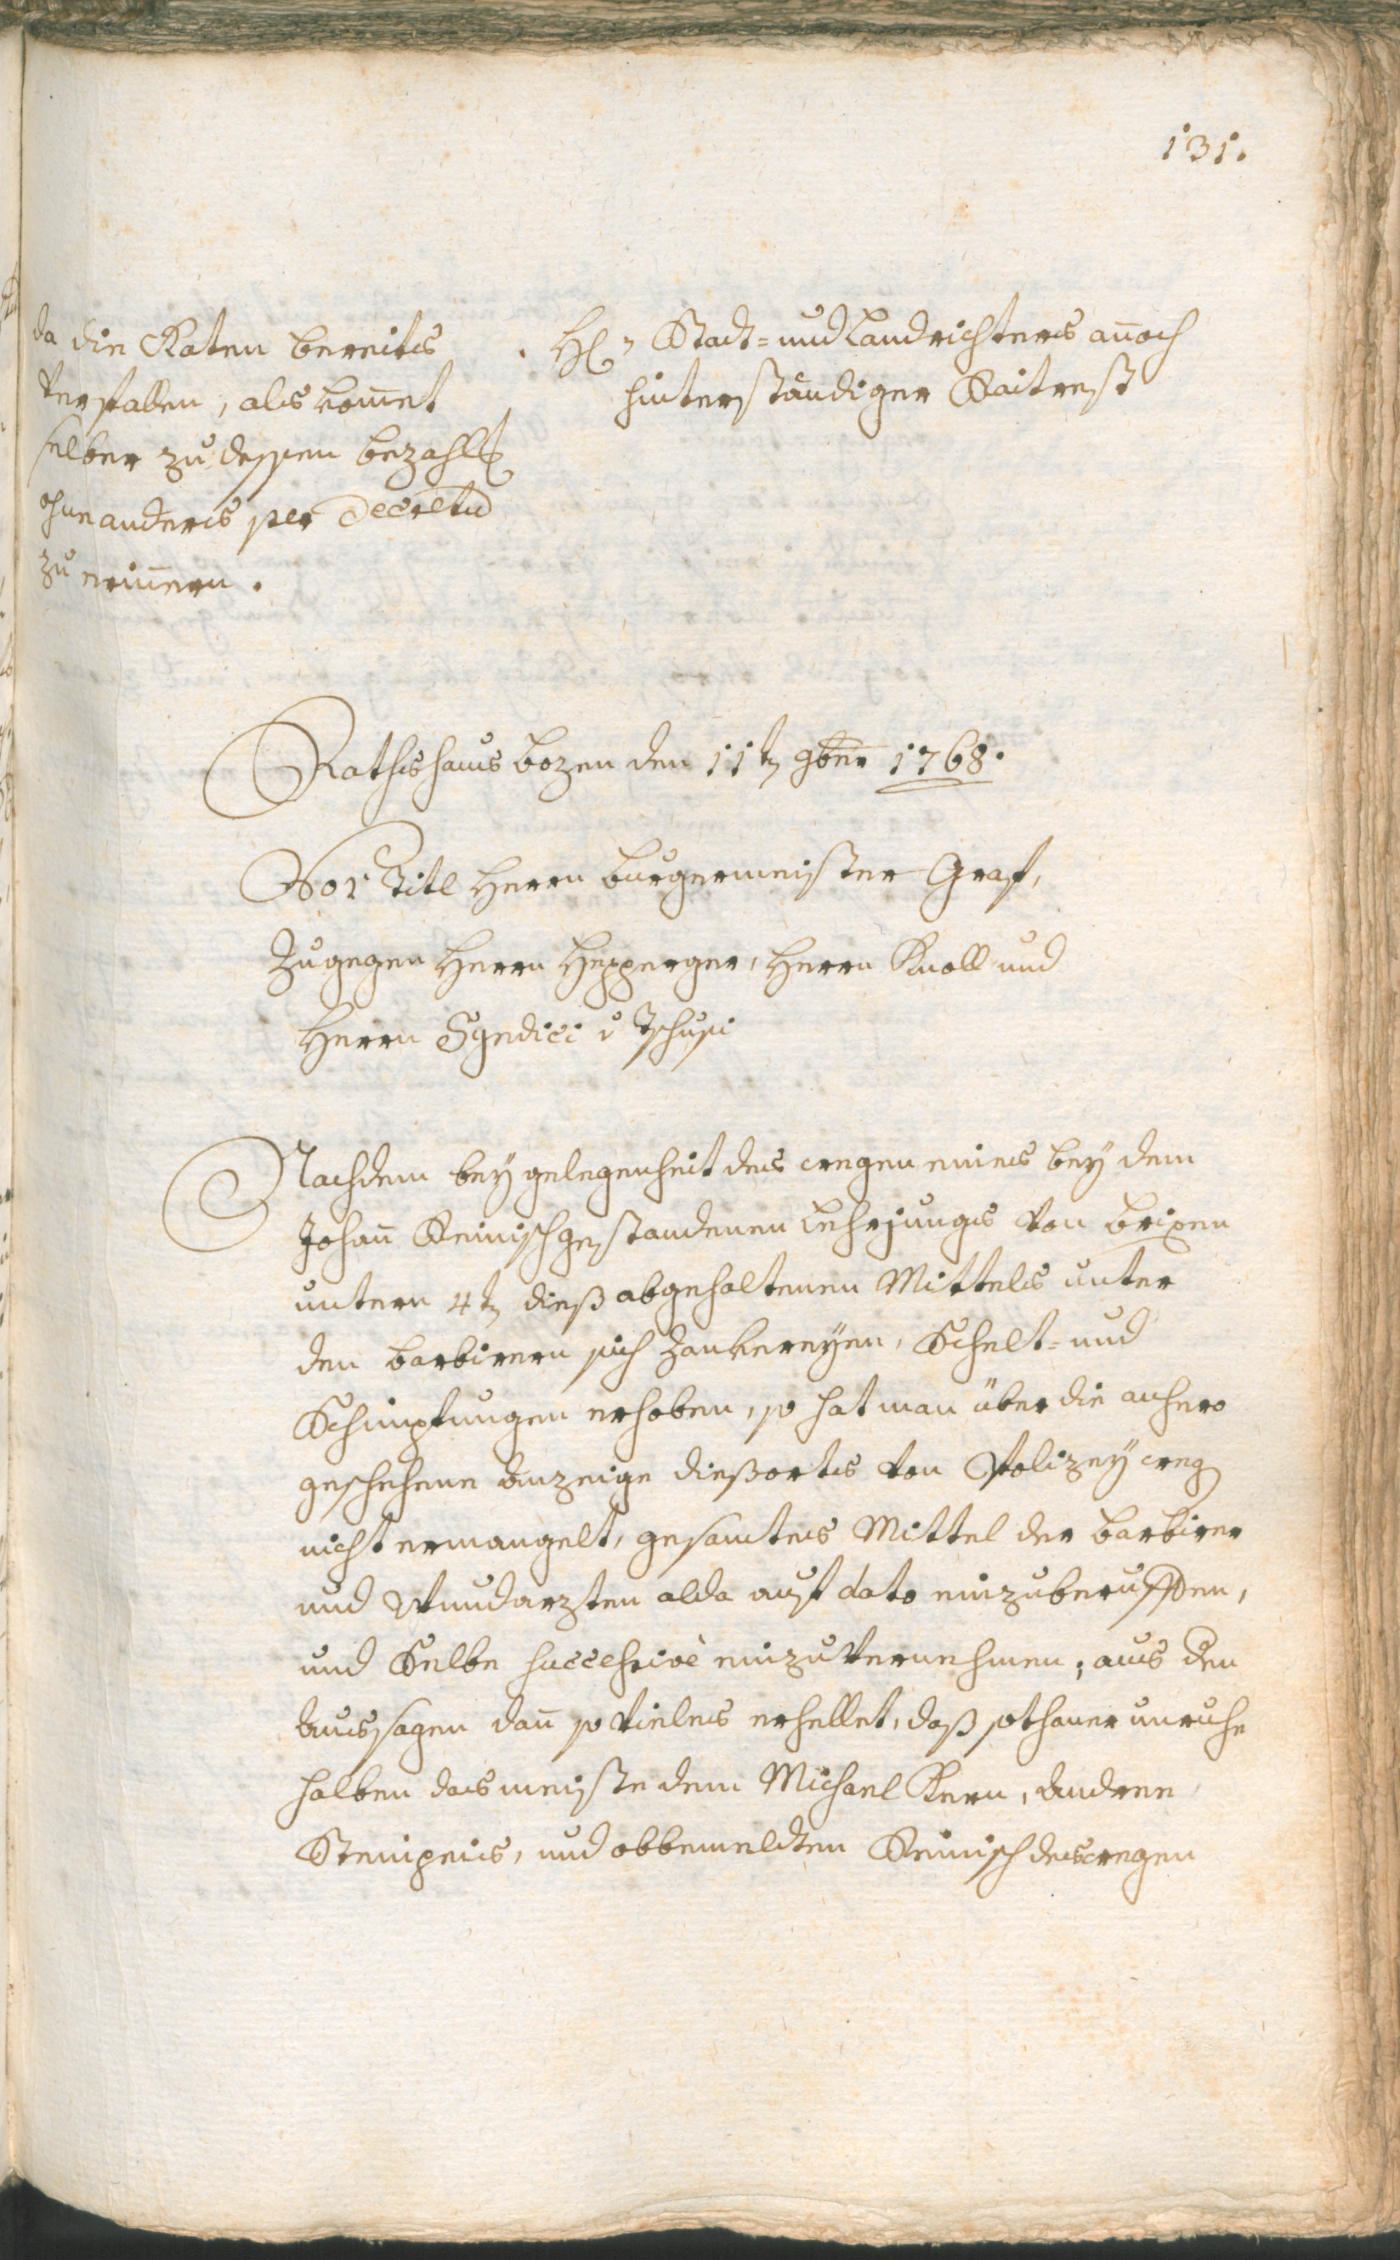 131.
da die Raten bereits
verfallen, als kom̄et
selber zu dessen bezahlg
ohne anders per Decretu
zu erin̄ern.
H: Stadt= und Landrichters an̄och
hinterständiger Raitrest
Rathshaus bozen den 11t 9ber 1768.
Vor Titl Herrn burgermeister Graf,
Zugegen Herrn Hepperger, Herrn Knoll und
Herrn Syndici v Tschusi
Nachdem bey gelegenheit des wegen eines bey dem
Johan̄ Reinisch gestandenen Lehrjungs von brixen
untern 4t dieß abgehaltenen Mittels unter
den barbirern sich Zankereyen, Schelt= und
Schimpfungen erhoben, so hat man über die anhero
geschehene anzeige dießorts von Polizey weg
nicht ermangelt, gesamtes Mittel der barbirer
und Wundarzten alda auf dato einzuberuffen,
und Selbe successive einzuvernehmen; aus den
aussagen dan̄ so vieles erhellet, daß sothaner unruhe
halben das meiste dem Michael Kern, Andree
und obbemeldten Reinisch deswegen